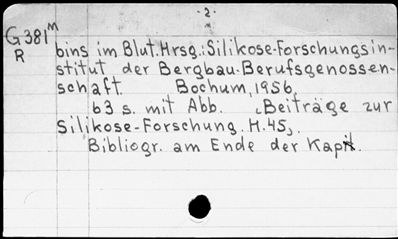 - 2 -
G 381 m
R
bins im Blut. Hrsg.: Silikose-Forschungsin-
stitut der Bergbau-Berufsgenossen-
schaft. Bochum, 1956,
63 s. mit Abb. (Beiträge zur
Silikose-Forschung. H. 45).
Bibliogr. am Ende der Kapit.